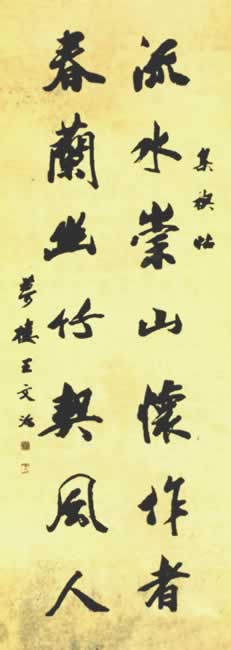 集禊帖
流水崇山懷作者
春蘭幽竹契風人
夢樓王文治